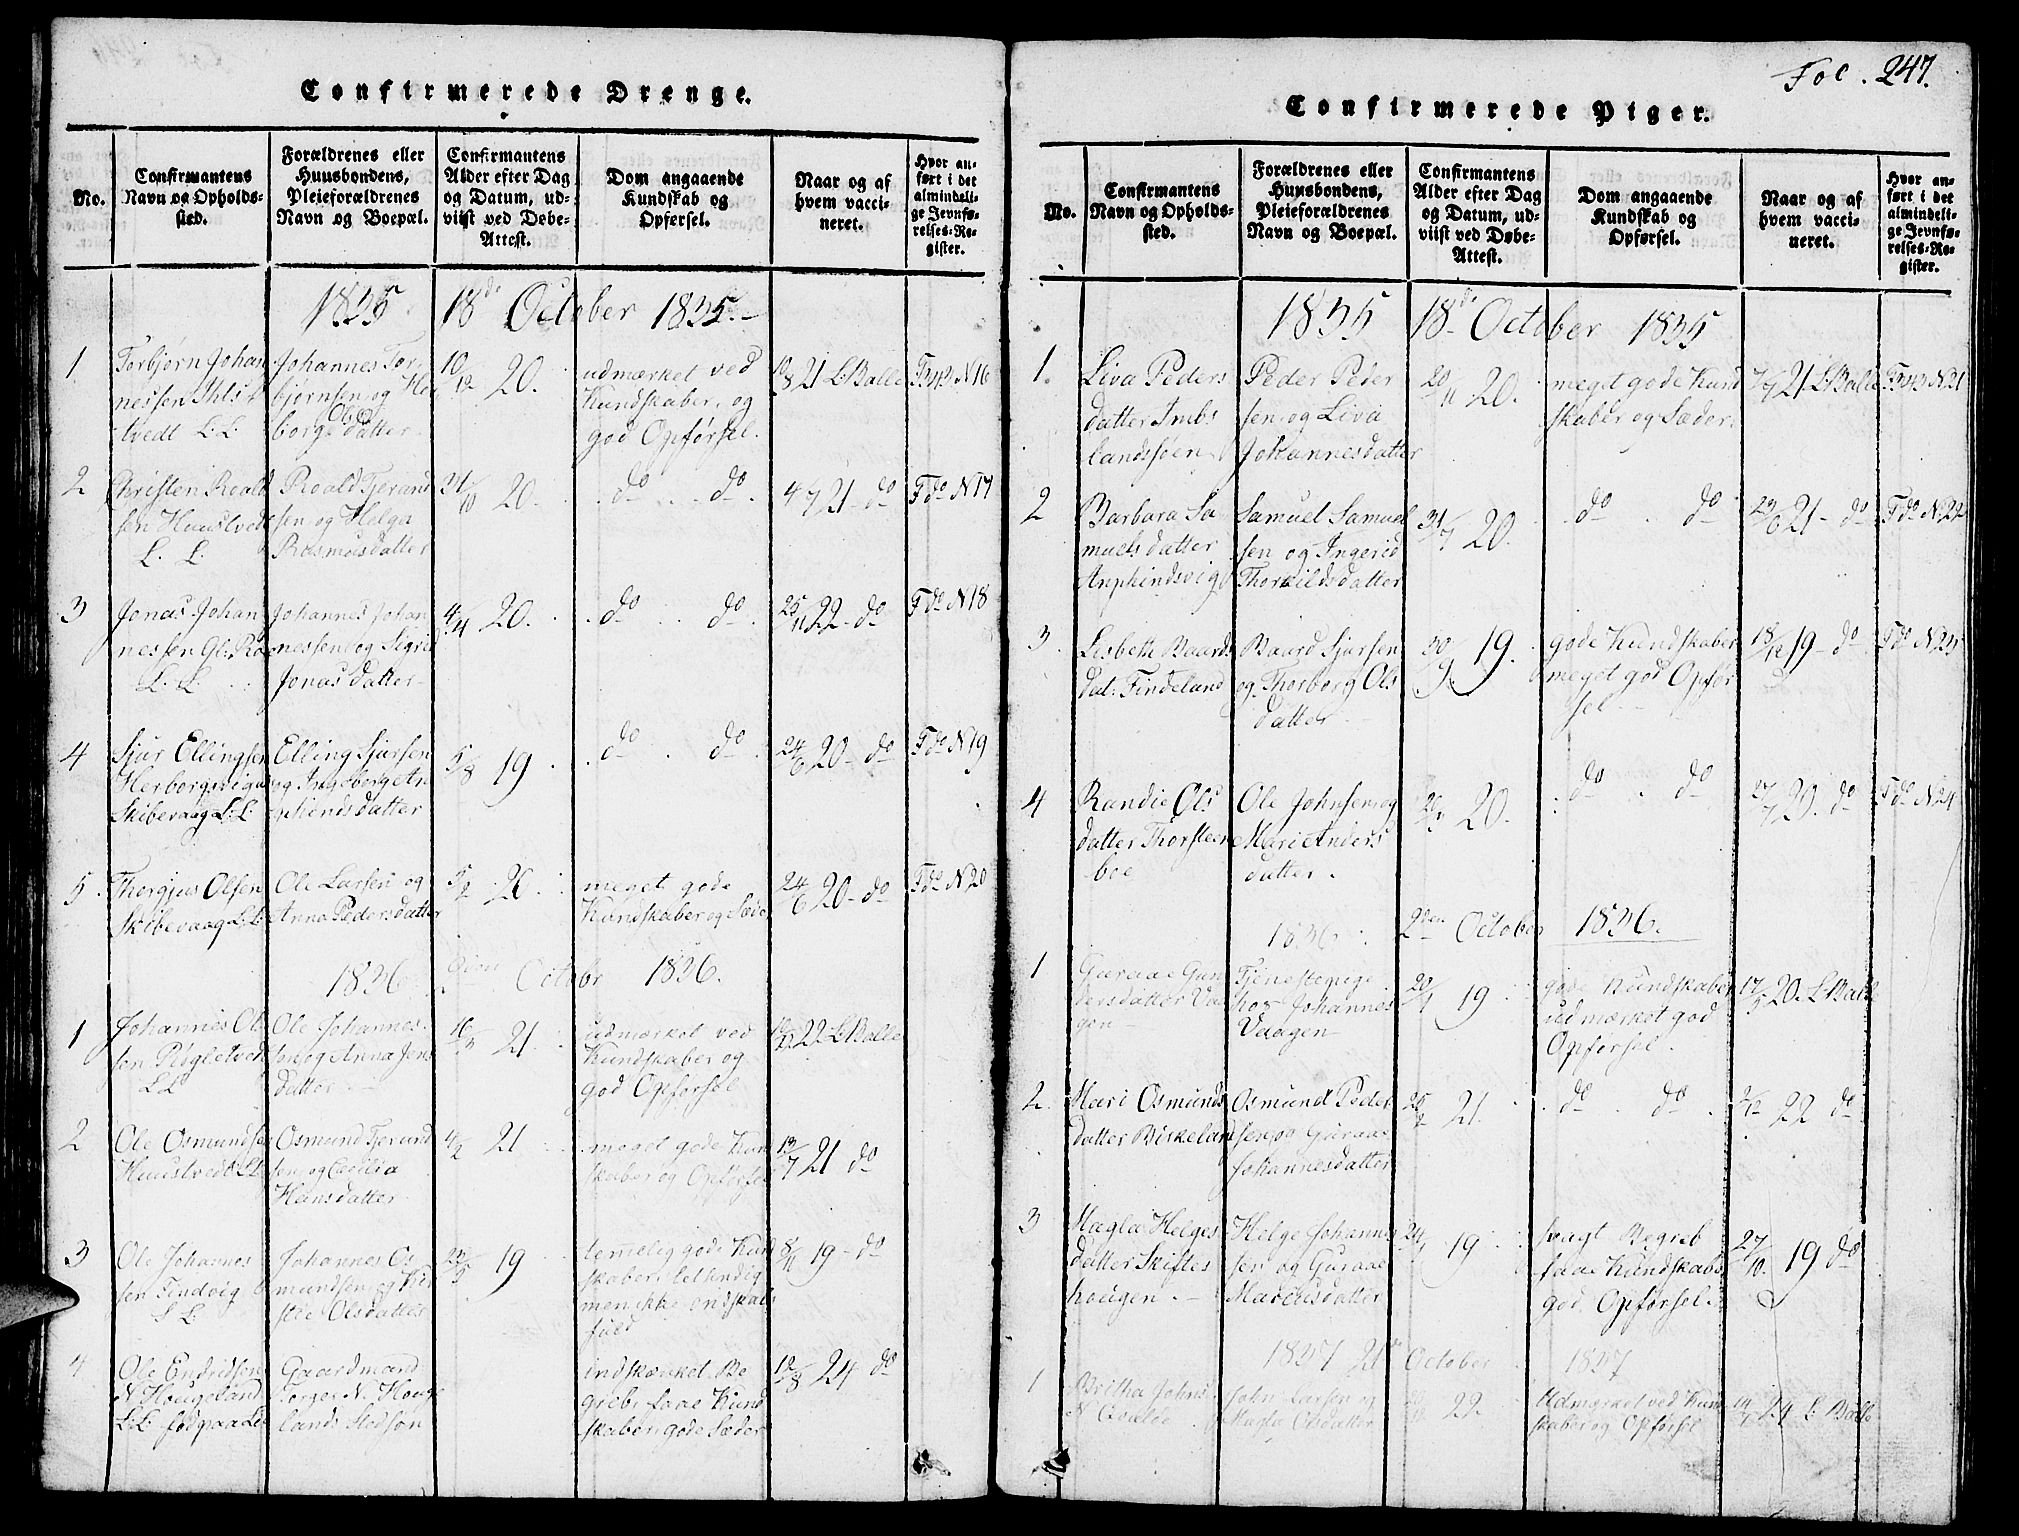 Confirmerede Drenge.
No.
Confirmantens
Navn og Opholds-
sted.
Forældrenes eller
Huusbondens,
Pleieforældrenes
Navn og Boepæl.
Confirmantens
Alder efter Dag
og Datum, ud-
viist ved Døbe-
Attest.
Dom angaaende
Kundskab og
Opførsel.
Naar og af
hvem vacci-
neret.
Hvor an-
ført i det
almindeli-
ge Jevnfø-
relses-Re-
gister.
1835. 18de October 1835.
1
Torbjørn Johan
nessen
tvedt L:L
Johannes Tor
bjørnsen og He
borge Ols
datter
10/12 20.
udmærket ved
Kundskaber, og
god Opførsel.
10/8 21 L Balle
F343 N16
2
Christen Roald
sen Huustvedt
L. L.
Roald Tjerand
sen og Helga
Rasmusdatter
31/10 20.
do do.
4/7 21 do
F do N17
3
Jonas Johan
nessen Gl. Roe
L. L.
Johannes Johan
nessen og Sigrid
Jonas datter
4/4 20.
do do.
25/11 22 do
F do N18
4
Sjur Ellingsen
Herborgsvigen
Skibevaag L:L
Elling Sjursen
og Ingeborg An
phinds datter
5/8 19
do do
24/6 20 do
F do N19
5
Thorgjus Olsen
Skibevaag L:L:
Ole Larsen og
Anna Pedersdatter
5/2 20.
meget gode
Kundskaber og Sæder
24/6 20 do
F do N20
1836 2den October 1836.
1
Johannes Ol
sen Røgletvedt
L L
Ole Johannes
sen og Anna Jens
datter
16/3 21.
udmærket ved
Kundskaber og
god Opførsel
22 L Balle
2
Ole Osmundsen
Huustvedt L:L
Osmund Tjerand
sen og Cecilia
Hansdatter
4/2 21
meget gode Kun
skaber og Opførsel
13/7 21 do
3
Ole Johannes
sen Tindvig
L L:
Johannes Os
mundsen og Kir
stie Olsdatter
23/5 19
temmelig gode Kund
skaber, letsindig
men ikke ondskabs
fuld
8/11 19 do
4
Ole Endridsen
N Hougeland
L:L: født paa
Gaardmand
Torger N. Houge
lands Stedsøn
indskrænket Be
greb, faae Kund
skaber, gode Sæder
12/8 24 do
Fol. 247.
Confirmerede Piger.
No.
Confirmantens
Navn og Opholds-
sted.
Forældrenes eller
Huusbondens,
Pleieforældrenes
Navn og Boepæl.
Confirmantens
Alder efter Dag
og Datum, ud-
viist ved Døbe-
Attest.
Dom angaaende
Kundskab og
Opførsel.
Naar og af
hvem vacci-
neret.
Hvor an-
ført i det
almindeli-
ge Jevnfø-
relses-Re-
gister.
1835 18de October 1835
1.
Liva Peders
datter Imbs
landsøen
Peder Peder
sen og Liva
Johannesdatter
20/11 20.
meget gode Kund
skaber og Sæder.
7/7 21 L Balle
F343 N21
2
Barbara Sa
muelsdatter
Anphindsvig
Samuel Samuel
sen og Ingerid
Thorkildsdatter
31/7 20.
do do
23/6 21 do
F do N22
3
Lisbeth Baards
dat: Findeland
Baard Sjursen
og Thorborg Ols
datter
30/9 19.
gode Kundskaber
meget god Opfør
sel
18/12 19 do
F do N23
4
Randie Ols
datter Thorsteen
boe
Ole Johnsen og
Mari Anders
datter.
20.
do do
27/7 20. do
F do N24
1836. 2den October 1836.
1
Guraae Gun
dersdatter Vaa
gen
Tjenestepige
hos Johannes
Vaagen
20/1 19
gode Kundskaber
udmærket god
Opførsel.
17/5 20. L Balle
2
Mari Osmunds
datter Birkeland
Osmund Peder
sen og Guraae
Johannesdatter
25/2 21.
do do
22 do
3
Magla Helges
datter Skiftes
hougen.
Helge Johannes
sen og Guraae
Marcusdatter
24/1 19
svagt Begreb
faae Kundskaber
god Opførsel.
27/10 19 do
1837 21de October 1837
1
Britha Johns
N Qvalde
John Larsen og
Magla Olsdatter
22.
Udmærket ved Kund
skaber og Opførsel
24 L Balle